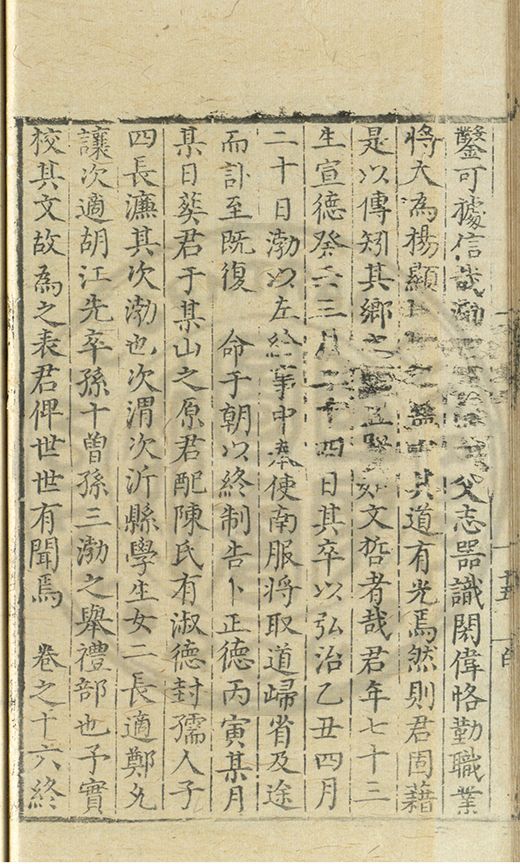 鑿可據信哉渤父志器識閎偉恪勤職業
將大為揚顯其道有光焉然則君固藉
是以傳矧其鄉文哲者哉君年七十三
生宣德癸丑三月二十四日其卒以弘治乙丑四月
二十日渤以左給事中奉使南服將取道歸省及途
而訃至既復 命于朝以終制告卜正德丙寅某月
某日葬君于某山之原君配陳氏有淑德封孺人子
四長濂其次渤也次渭次沂縣學生女二長適鄭允
讓次適胡江先卒孫十曽孫三渤之舉禮部也予實
校其文故為之表君俾世世有聞焉 卷之十六終